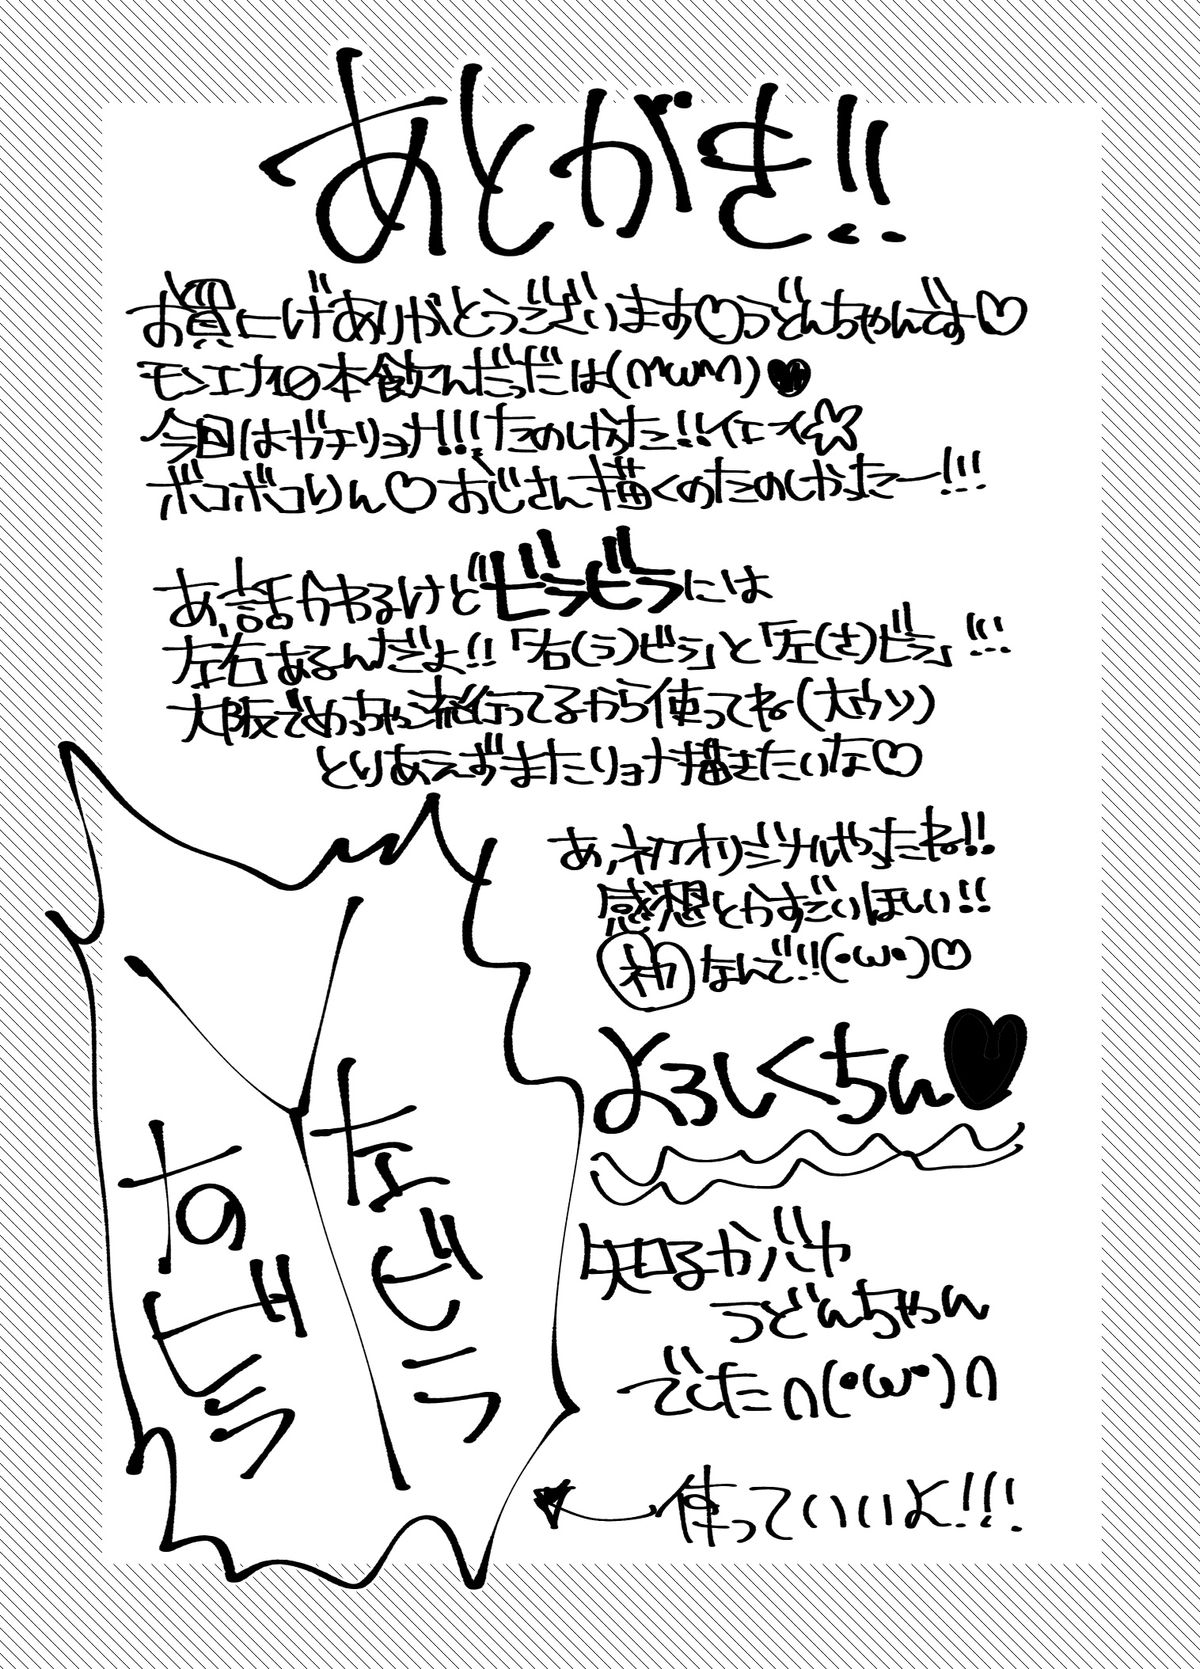 あとがき!!
お買上げありがとうございます♡うどんちゃんです♡
モンエナ10本飲んだっだは(ΜωΜ)♥
今回はガチリョナ!!!たのしかった!!イエーイ☆
ボコボコりん♡おじさん描くのたのしかったー!!!
あ、話かわるけどビラビラには
左右あるんだよ!!「右(う)ビラ」と「左(さ)ビラ」!!!
大阪でめっちゃ流行ってるから使ってね(大ウソ)
とりあえずまたリョナ描きたいな♡
あ、初オリジナルやったね!!
感想とかすごいほしい!!
初なんで!!(・ω・)♡
よろしくちん♥
知るかバカ
うどんちゃん
でした∩(・ω・)∩
使っていいよ!!!